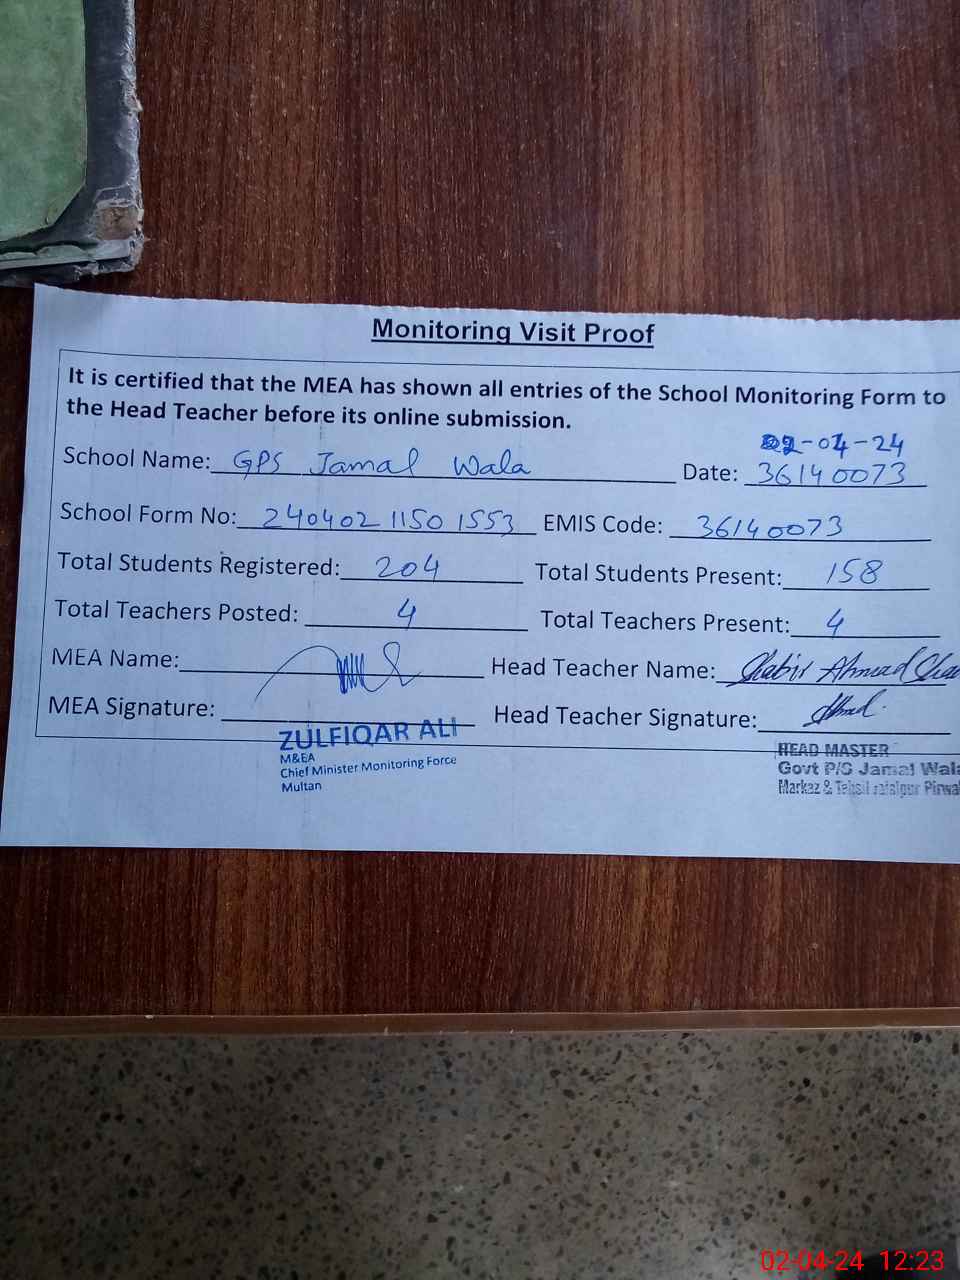 Monitoring Visit Proof
It is certified that the MEA has shown all entries of the School Monitoring Form to
the Head Teacher before its online submission.
02-04-24
School Name: GPS Jamal Wala Date: 36140073
School Form No: 240402 1150 1553 EMIS Code: 36140073
Total Students Registered: 204 Total Students Present: 158
Total Teachers Posted: 4 Total Teachers Present: 4
MEA Name: Head Teacher Name: Shabir Ahmad
MEA Signature: Head Teacher Signature:
ZULFIQAR ALI
M&EA
Chief Minister Monitoring Force
Multan
HEAD MASTER
Govt P/S Jamal Wala
Markaz & Tehsil Pirwal
02-04-24 12:23